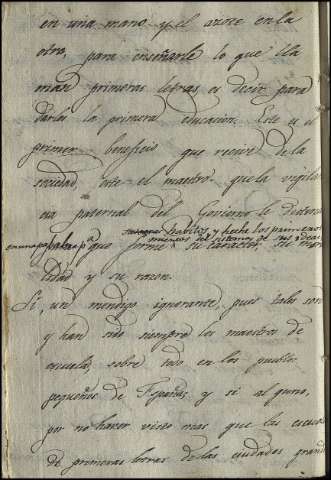 en una mano y el azote en la
otro, para enseñarle lo que lla
man primeras letras es decir para
darles la primera educacion. Este es el
primer beneficio que recive de la
sociedad, este el maestro que la vigilan
cia paternal del Govierno le destina
habitos, y heche los primeros
mientos del sistema de sus ideas
en una palabra pª que forme su caracter, su mora
lidad y su razon.
Si, un mendigo ignorante, pues tales son
y han sido siempre los maestros de
escuela, sobre todo en los pueblos
pequeños de España; y si alguno,
por no haver visto mas que las escuelas
de primeras letras de las ciudades grand